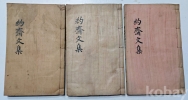 約齋文集
約齋文集
約齋文集
kobay